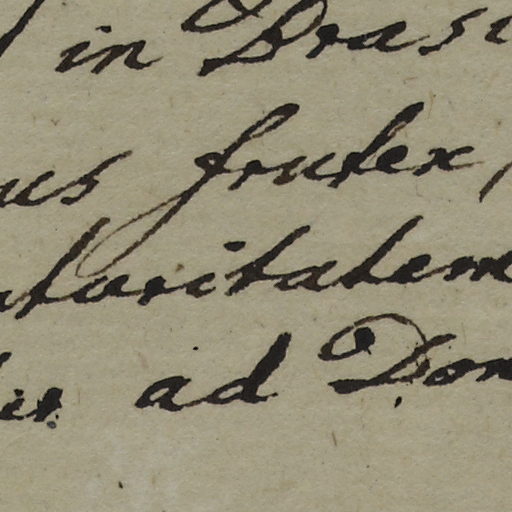 in Brasi
us frutex,
utoritatem
ad Dom